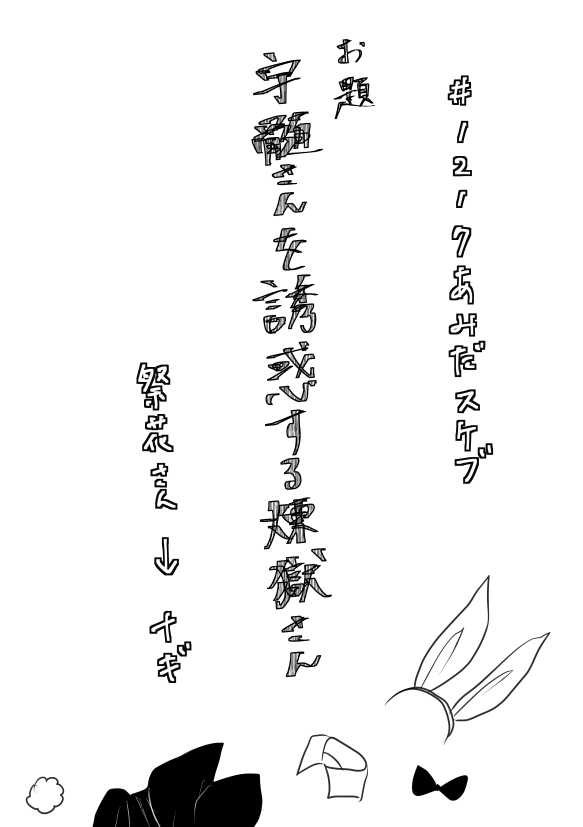 #121クあみだスケブ
お題
宇髄さんを誘惑する煉獄さん
祭花さん→ナギ